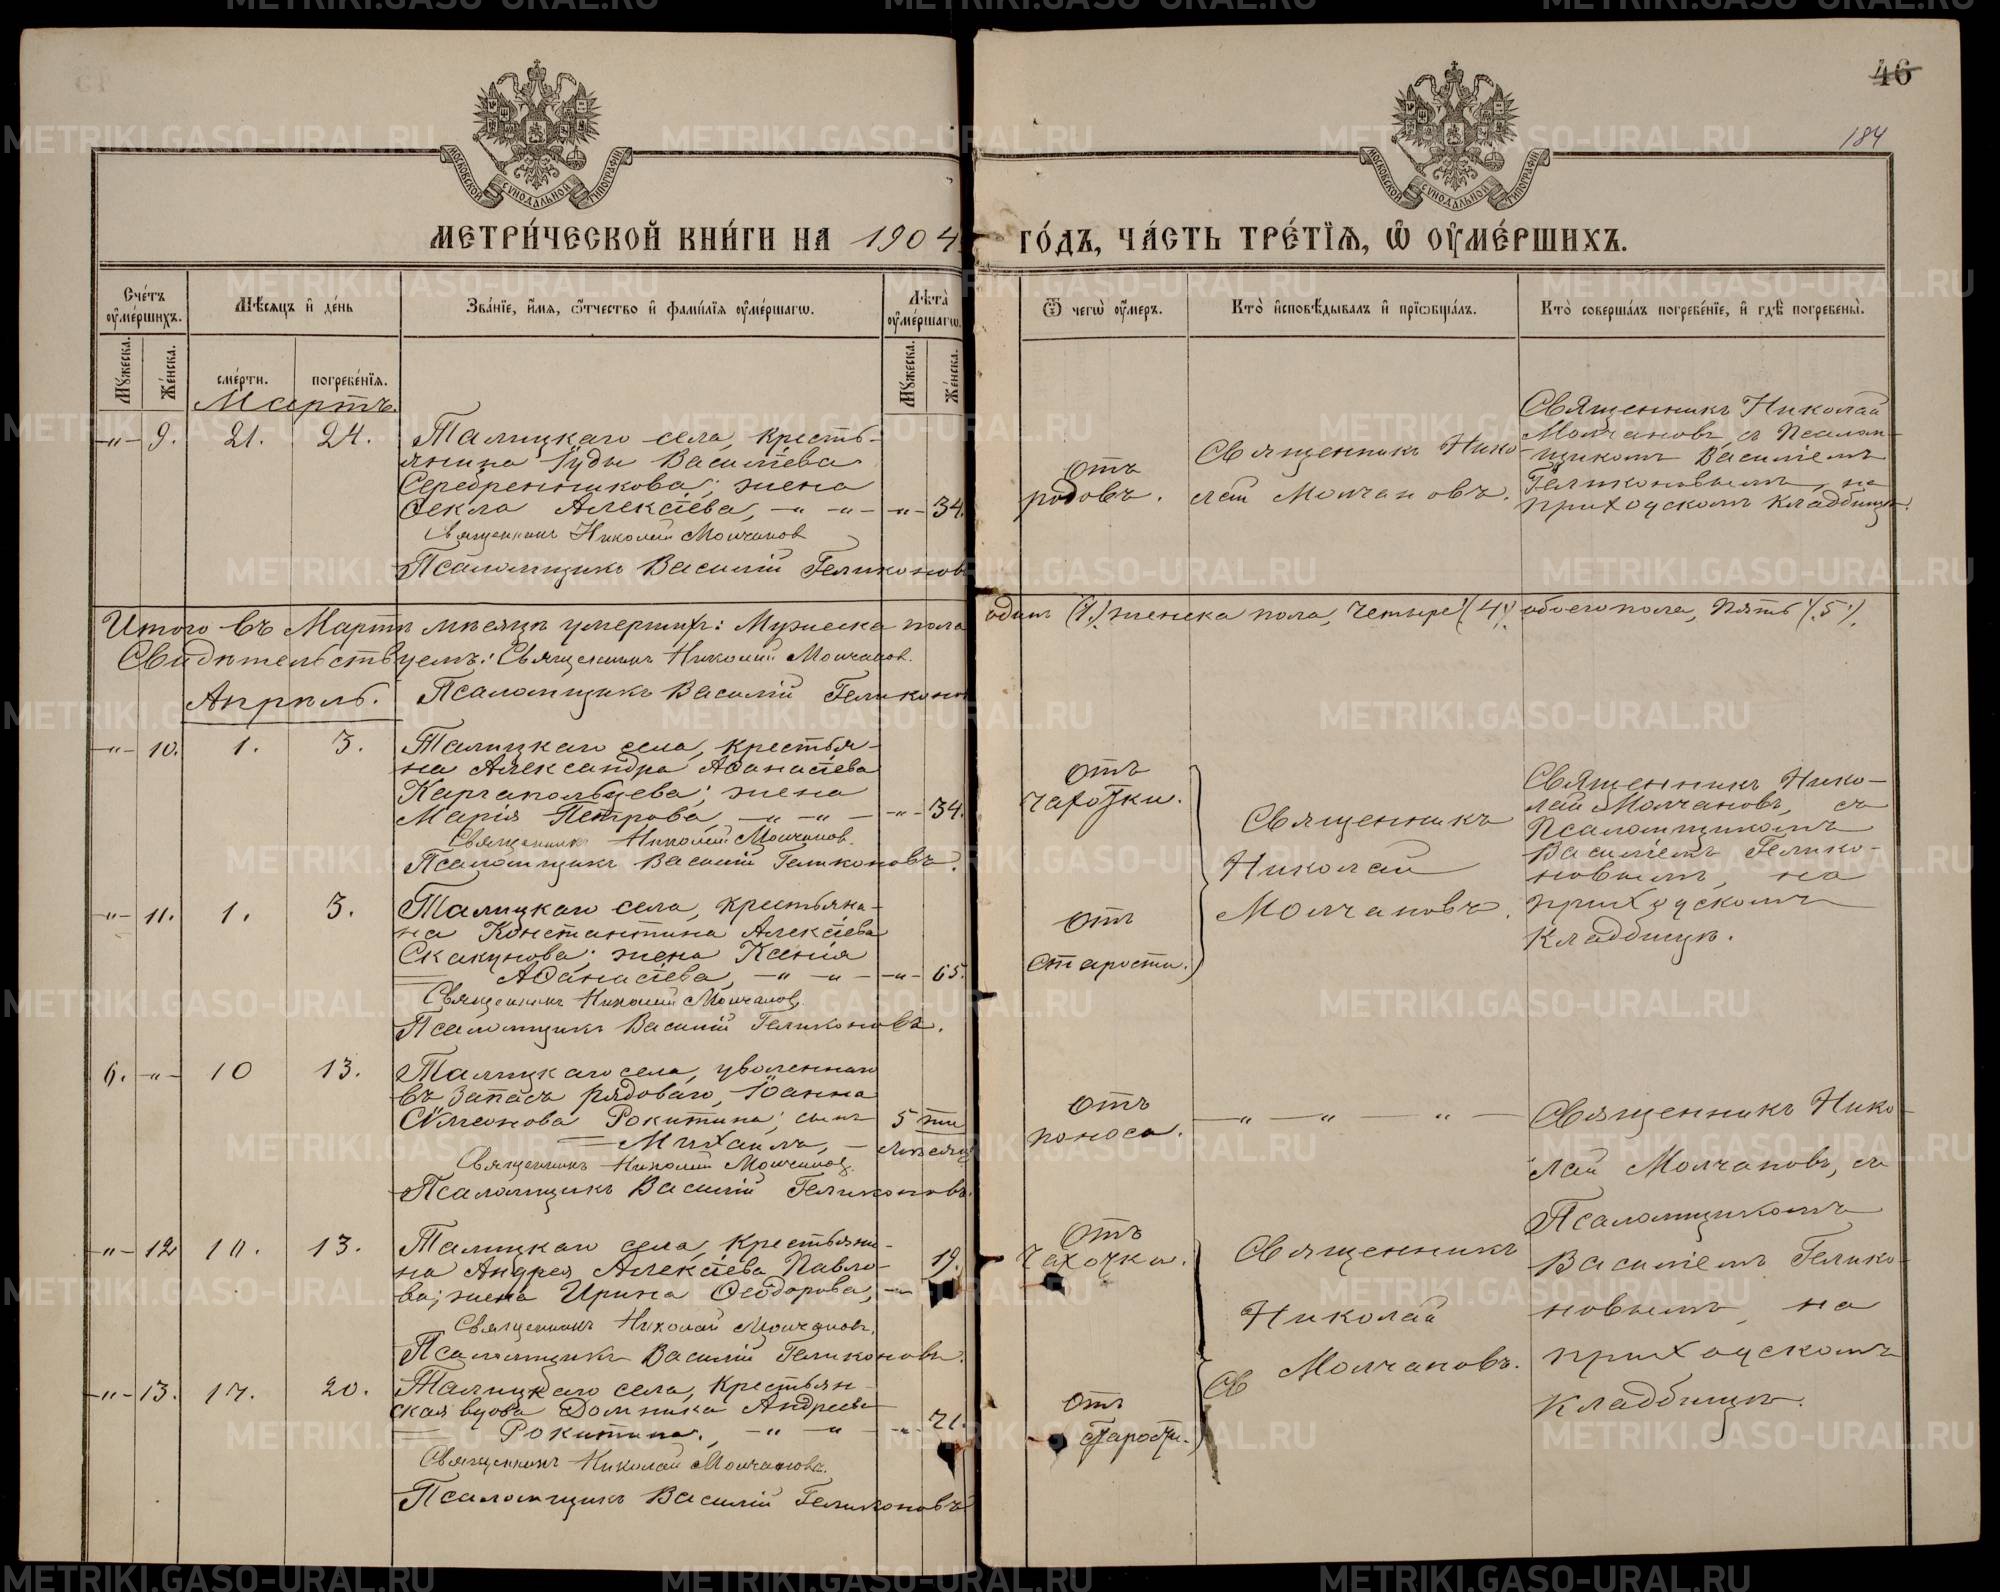 46
184
МОСКОВСКОЙ СѴНОДАЛЬНОЙ ТИПОГРАФІИ
МОСКОВСКОЙ СѴНОДАЛЬНОЙ ТИПОГРАФІИ
МЕТРИ́ЧЕСКОЙ КНИ́ГИ НА 1904
ГО́ДЪ, ЧА́СТЬ ТРЕ́ТІѦ, Ѡ҆ ОУ҆МЕ́РШИХЪ.
Сче́тъ оу҆ме́ршихъ.
Мѣ́сяцъ и҆ де́нь
Зва́нїе, и҆́мя, ѻ҆́тчество и҆ фами́лїя оу҆ме́ршагѡ.
Лѣ́та оу҆ме́ршагѡ.
Ѿ чегѡ̀ оу҆́меръ.
Кто̀ и҆сповѣ́дывалъ и҆ прїѡбща́лъ.
Кто̀ соверша́лъ погребе́нїе, и҆ гдѣ̀ погребены̀.
Мꙋ́жеска.
Же́нска.
сме́рти.
погребе́нїя.
Мꙋ́жеска.
Же́нска.
Мартъ.
-"- 9. 21. 24. Талицкаго села, кресть-
янина Іуды Василіева
Серебренникова; жена
Ѳекла Алексіева, -"- -"- -"- 34.
Священникъ Николай Молчановъ
Псаломщикъ Василій Геликоновъ
Отъ
родовъ.
Священникъ Нико-
лай Молчановъ.
Священникъ Николай
Молчановъ, съ Псалом-
щикомъ Василіемъ
Геликоновымъ, на
приходскомъ кладбищѣ.
Итого въ Мартѣ мѣсяцѣ умершихъ: Мужеска пола одинъ (1), женска пола, четыре (4), обоего пола, пять (5).
Свидѣтельствуемъ: Священникъ Николай Молчановъ.
Апрѣль. Псаломщикъ Василій Геликоновъ
-"- 10. 1. 3. Талицкаго села, крестьяни-
на Александра Аѳанасіева
Каргапольцева; жена
Марія Петрова, -"- -"- -"- 34.
Священникъ Николай Молчановъ.
Псаломщикъ Василій Геликоновъ.
Отъ
чахотки.
Священникъ
Николай
Молчановъ.
Священникъ Нико-
лай Молчановъ, съ
Псаломщикомъ
Василіемъ Гелико-
новымъ, на
приходскомъ
кладбищѣ.
-"- 11. 1. 3. Талицкаго села, крестьяни-
на Константина Алексіева
Скакунова; жена Ксенія
Аѳанасіева, -"- -"- -"- 65.
Священникъ Николай Молчановъ.
Псаломщикъ Василій Геликоновъ.
Отъ
старости.
6. -"- 10 13. Талицкаго села, уволеннаго
въ запасъ рядоваго, Іоанна
Сѵмеонова Рокитина; сынъ 5 ти
Михаилъ, - мѣсяц
Священникъ Николай Молчановъ.
Псаломщикъ Василій Геликоновъ.
Отъ
поноса.
-"- -"- -"-
Священникъ Нико-
лай Молчановъ, съ
Псаломщикомъ
Василіемъ Гелико-
новымъ, на
приходскомъ
кладбищѣ.
-"- 12 13. Талицкаго села, крестьяни-
на Андрея Алексіева Павло- 19.
ва; жена Ирина Ѳеодорова, -"-
Священникъ Николай Молчановъ.
Псаломщикъ Василій Геликоновъ.
Отъ
чахотки.
Священникъ
Николай
Молчановъ.
-"- 13. 17. 20. Талицкаго села, крестьян-
ская вдова Домника Андреева
Рокитина, -"- -"- -"- 71.
Священникъ Николай Молчановъ.
Псаломщикъ Василій Геликоновъ
Отъ
старости.
Св
METRIKI.GASO-URAL.RU